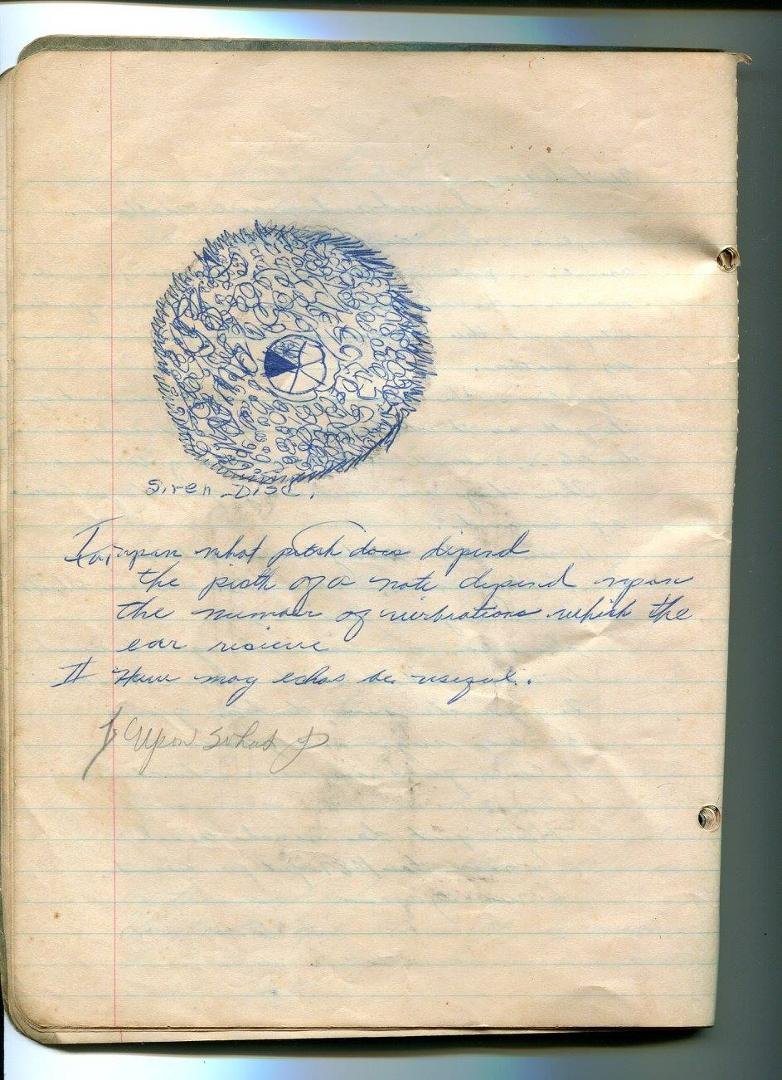 Siren-Disc.
I upon what pitch does dipend
the picth of a note depend upon
the number of virbrations which the
ear recieve
II How may echos be useful.
I Upon what p